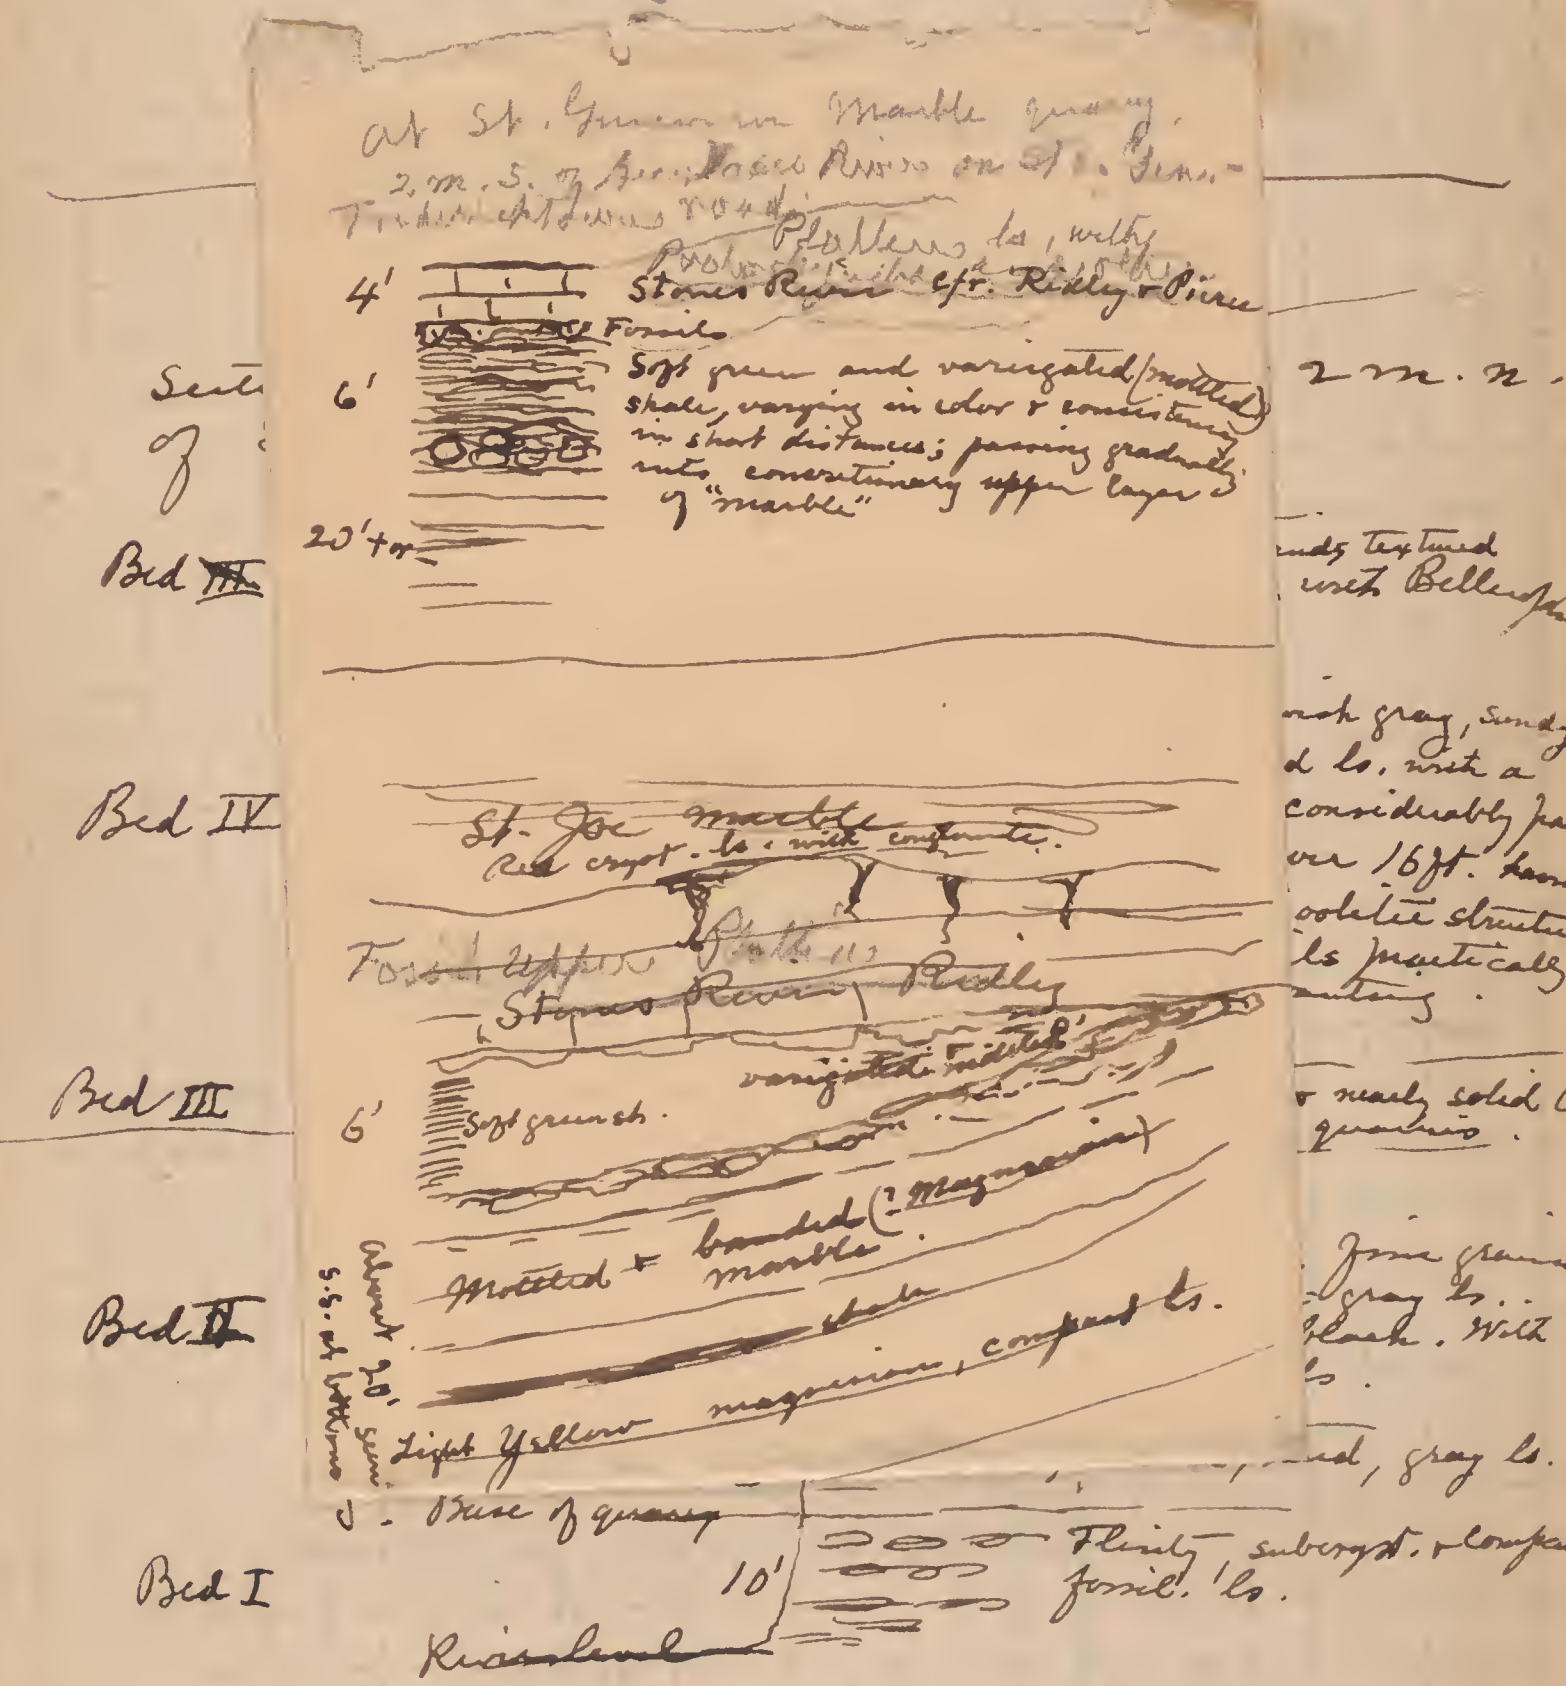 At St. Marble quarry,
2 m. S. of River on St.
road
Plattens ls, with
4' Stones River c/r. Ridley & Pierce
Fossils
6' Soft green and variegated (mottled)
shale, varying in color & consistency
in short distances; passing gradually
into concretionary upper layer
of "marble"
20' + or -
St. Joe Marble
Red cryst. ls. with conglomerate.
Fossil Upper Plattens
Stones River Ridley
variegated & mottled
6' Soft green sh.
Mottled & banded (? Magnesian)
marble.
shale
Light Yellow magnesian, compact ls.
About 20' seen
S.S. at bottom
Secti
of
Bed III
Bed IV
Bed III
Bed II
Bed I
2 m. n.
textured
with Belleroph
gray, sandy
d ls. with a
considerably
ver 16 ft.
oolitic structu
ls practically
& nearly solid
quarries.
Fine grain
gray ls.
black. With
ls.
gray ls.
Base of quarry
10' Flinty, subcryst. & compa
fossil. ls.
River level